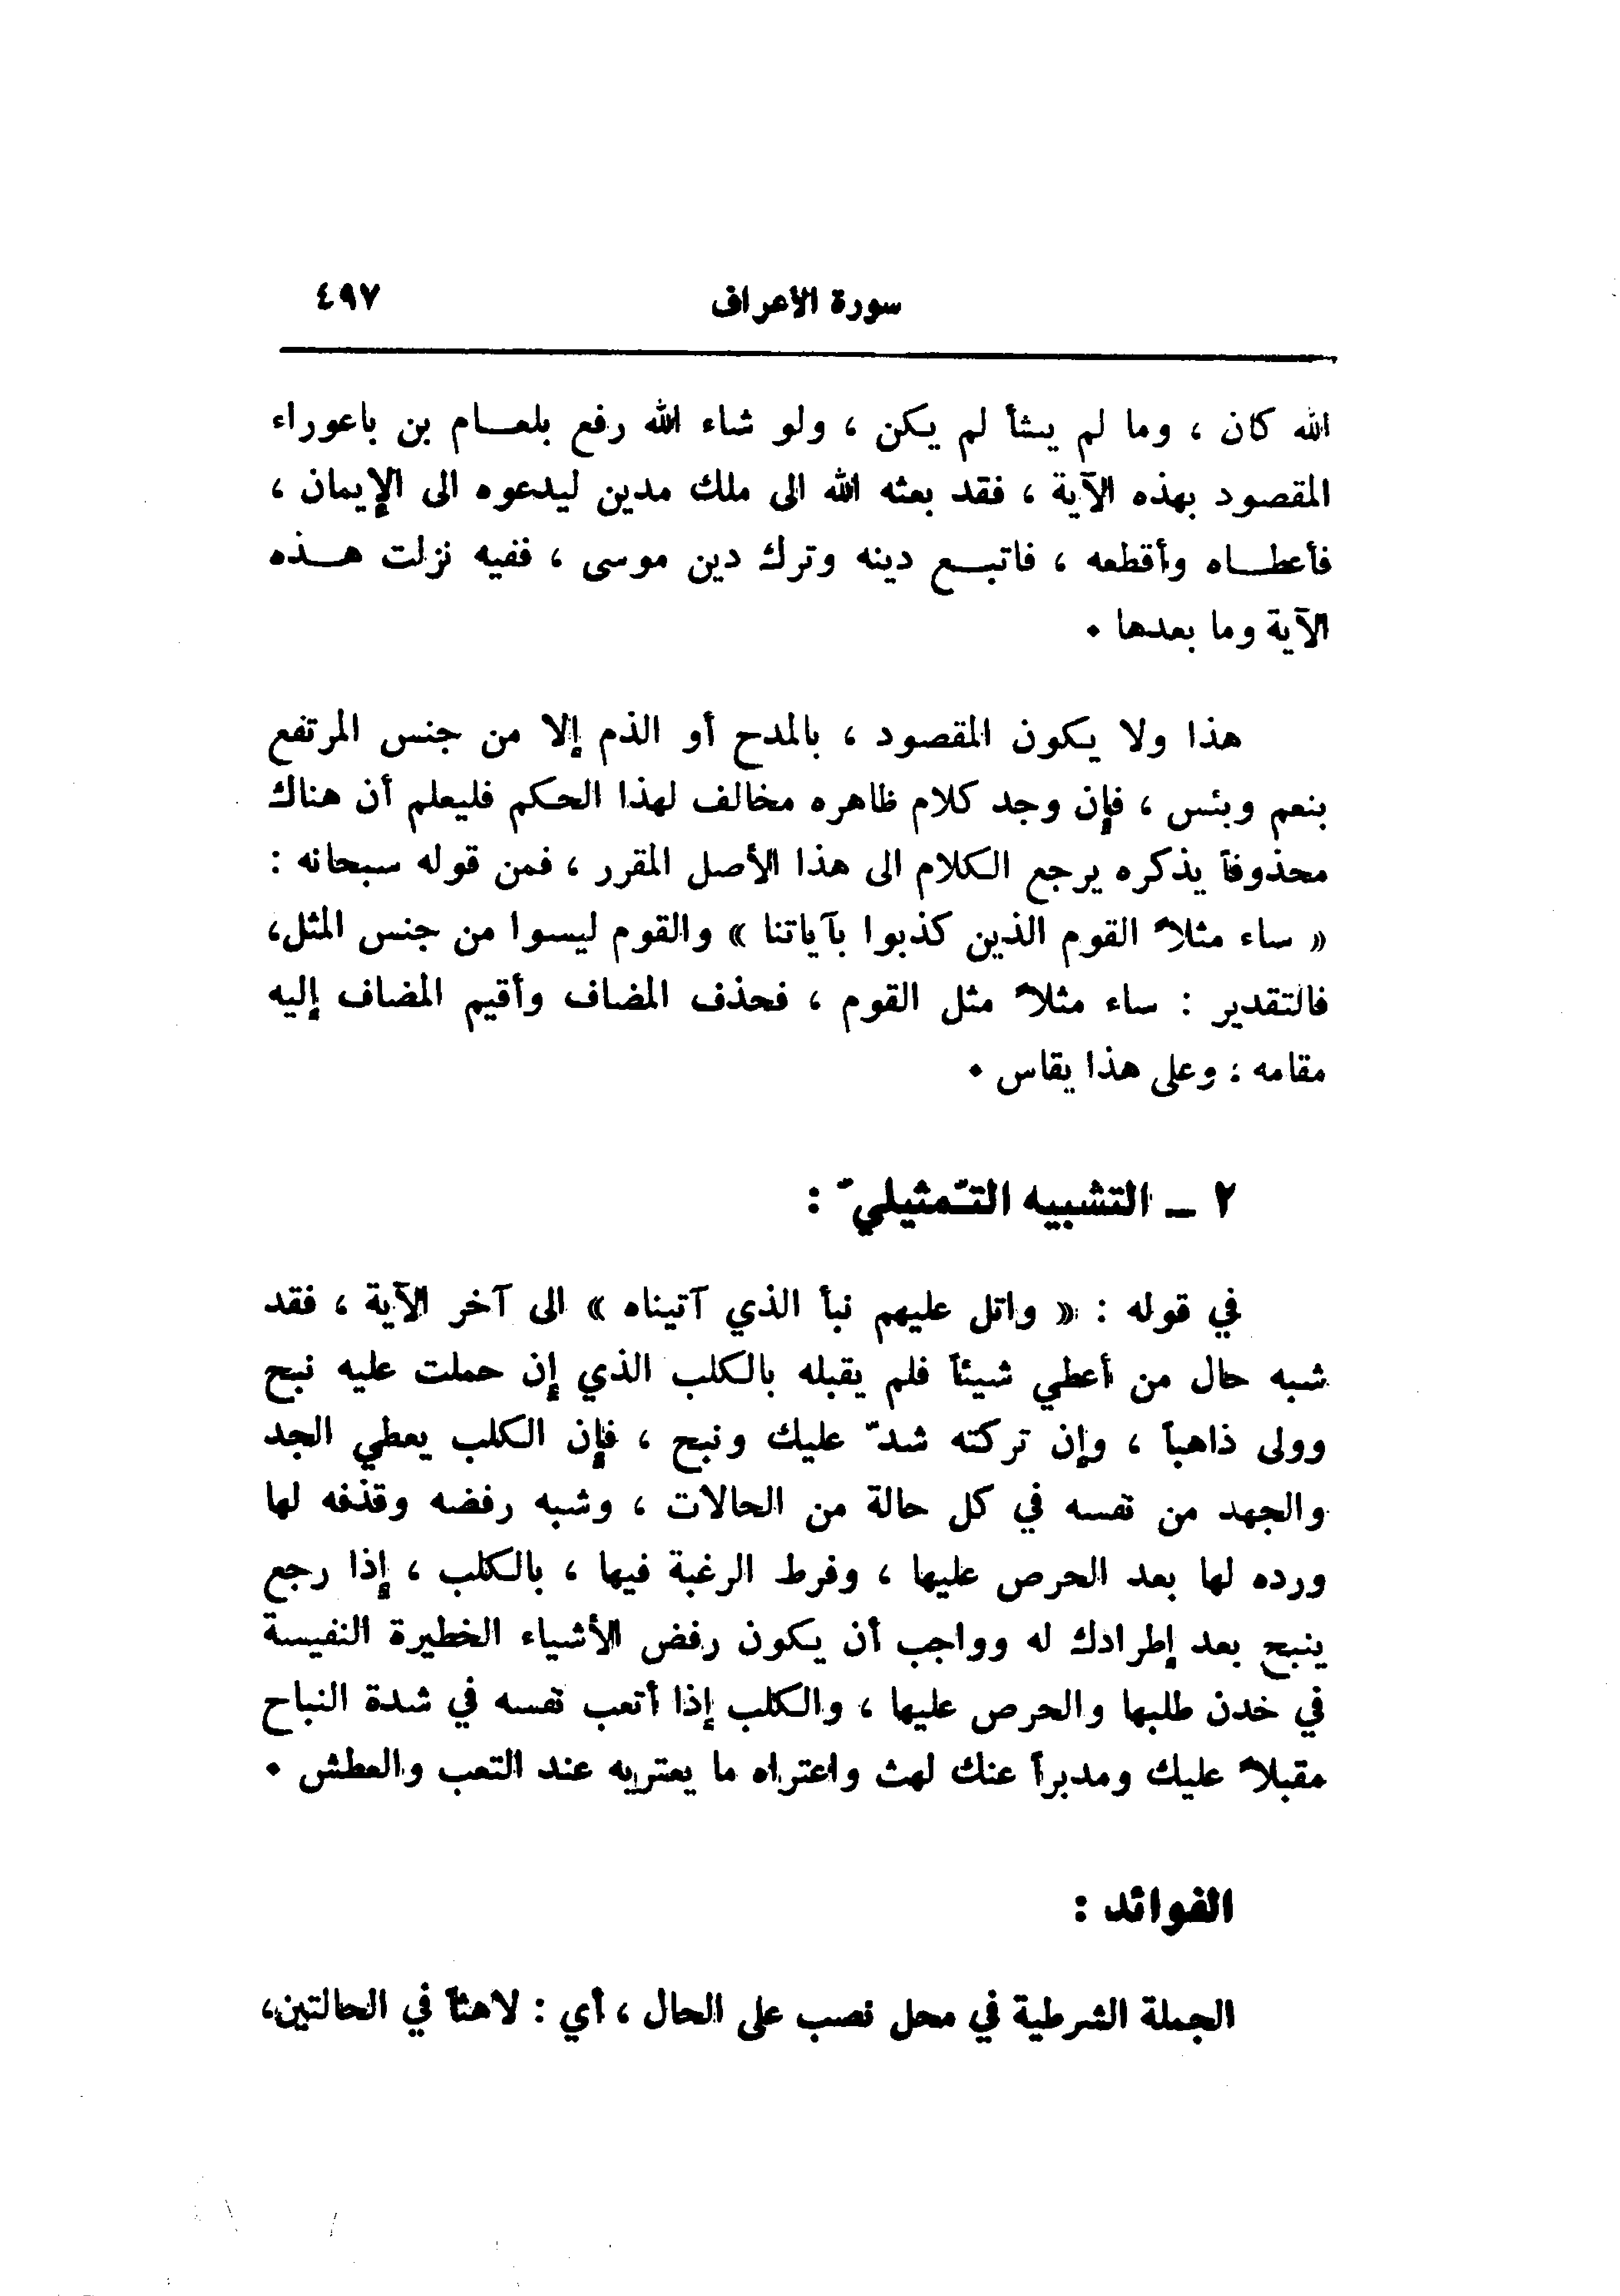 سورة الأعراف ٤٩٧
الله كان ، وما لم يشأ لم يكن ، ولو شاء الله رفع بلعـام بن باعوراء
المقصود بهذه الآية ، فقد بعثه الله الى ملك مدين ليدعوه الى الإيمان ،
فأعطـاه وأقطعه ، فاتبـع دينه وترك دين موسى ، ففيه نزلت هـذه
الآية وما بعدها .
هذا ولا يكون المقصود ، بالمدح أو الذم إلا من جنس المرتفع
بنعم وبئس ، فإن وجد كلام ظاهره مخالف لهذا الحكم فليعلم أن هناك
محذوفاً يذكره يرجع الكلام الى هذا الأصل المقرر ، فمن قوله سبحانه :
« ساء مثلاً القوم الذين كذبوا بآياتنا » والقوم ليسوا من جنس المثل،
فالتقدير : ساء مثلاً مثل القوم ، فحذف المضاف وأقيم المضاف إليه
مقامه ؛ وعلى هذا يقاس .
٢ ــ التشبيه التّمثيليّ :
في قوله : « واتل عليهم نبأ الذي آتيناه » الى آخر الآية ، فقد
شبه حال من أعطي شيئاً فلم يقبله بالكلب الذي إن حملت عليه نبح
وولى ذاهباً ، وإن تركته شدّ عليك ونبح ، فإن الكلب يعطي الجد
والجهد من نفسه في كل حالة من الحالات ، وشبه رفضه وقذفه لها
ورده لها بعد الحرص عليها ، وفرط الرغبة فيها ، بالكلب ، إذا رجع
ينبح بعد إطرادك له وواجب أن يكون رفض الأشياء الخطيرة النفيسة
في خدن طلبها والحرص عليها ، والكلب إذا أتعب نفسه في شدة النباح
مقبلاً عليك ومدبراً عنك لهث واعتراه ما يعتريه عند التعب والعطش .
الفوائد :
الجملة الشرطية في محل نصب على الحال ، أي : لاهثاً في الحالتين،